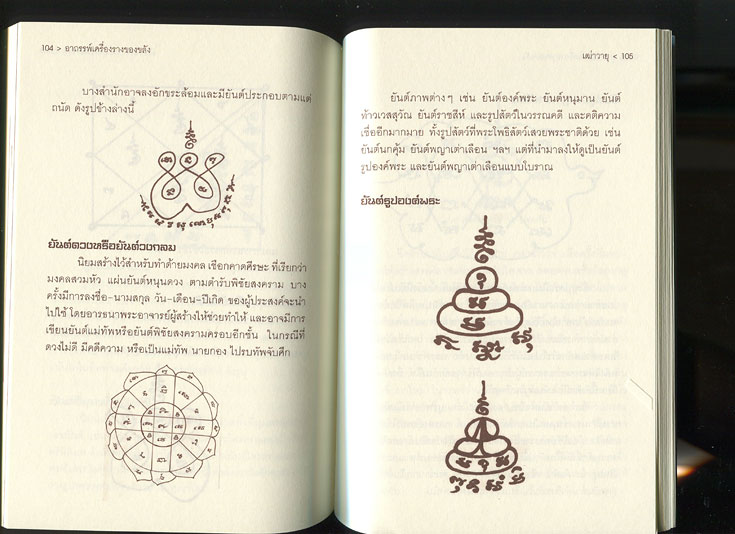 104 > อาถรรพ์เครื่องรางของขลัง
บางสำนักอาจลงอักขระล้อมและมียันต์ประกอบตามแต่
ถนัด ดังรูปข้างล่างนี้
ยันต์ดวงหรือยันต์วงกลม
นิยมสร้างไว้สำหรับทำด้ายมงคล เชือกคาดศีรษะ ที่เรียกว่า
มงคลสวมหัว แผ่นยันต์หนุนดวง ตามตำรับพิชัยสงคราม บาง
ครั้งมีการลงชื่อ-นามสกุล วัน-เดือน-ปีเกิด ของผู้ประสงค์จะนำ
ไปใช้ โดยอาราธนาพระอาจารย์ผู้สร้างให้ช่วยทำให้ และอาจมีการ
เขียนยันต์แม่ทัพหรือยันต์พิชัยสงครามครอบอีกชั้น ในกรณีที่
ดวงไม่ดี มีคดีความ หรือเป็นแม่ทัพ นายกอง ไปรบทัพจับศึก
เฒ่าวายุ < 105
ยันต์ภาพต่างๆ เช่น ยันต์องค์พระ ยันต์หนุมาน ยันต์
ท้าวเวสสุวัณ ยันต์ราชสีห์ และรูปสัตว์ในวรรณคดี และคติความ
เชื่ออีกมากมาย ทั้งรูปสัตว์ที่พระโพธิสัตว์เสวยพระชาติด้วย เช่น
ยันต์นกคุ้ม ยันต์พญาเต่าเลือน ฯลฯ แต่ที่นำมาลงให้ดูเป็นยันต์
รูปองค์พระ และยันต์พญาเต่าเลือนแบบโบราณ
ยันต์รูปองค์พระ